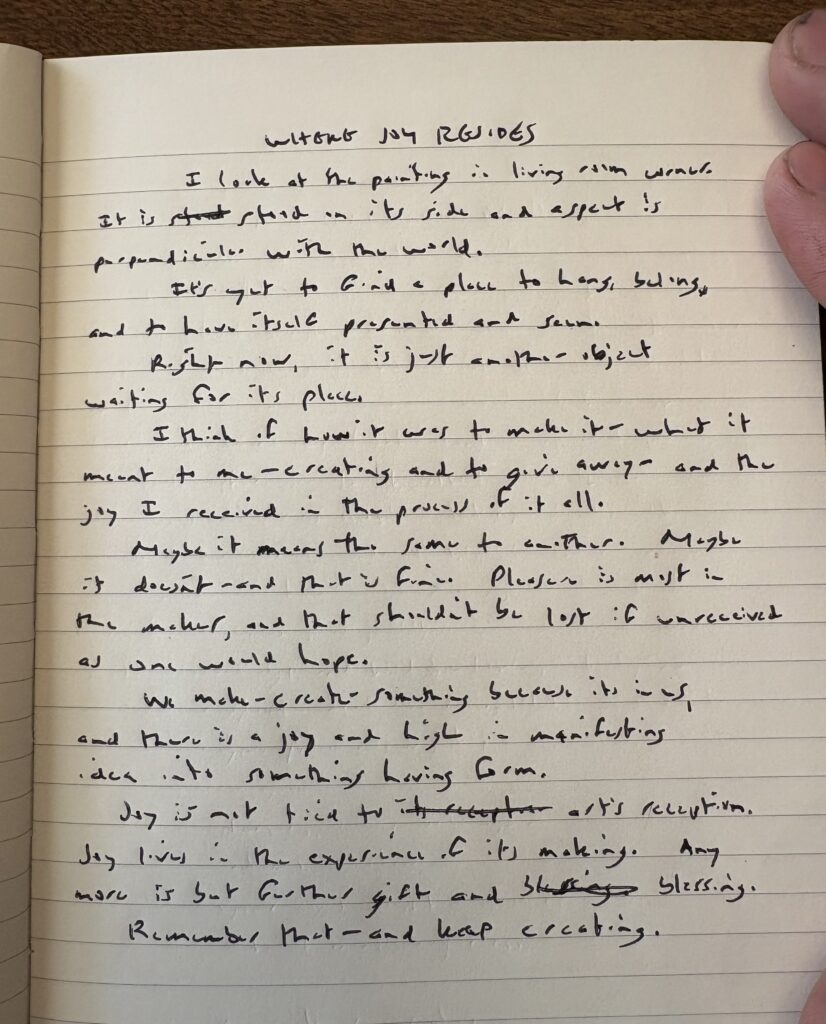 WHERE JOY RESIDES
I look at the painting in living room corner.
It is stood stood on its side and aspect is
perpendicular with the world.
It's yet to find a place to hang, belong,
and to have itself presented and seen.
Right now, it is just another object
waiting for its place.
I think of how it was to make it - what it
meant to me - creating and to give away - and the
joy I received in the process of it all.
Maybe it means the same to another. Maybe
it doesn't - and that is fine. Pleasure is most in
the maker, and that shouldn't be lost if unreceived
as one would hope.
We make - create - something because its in us,
and there is a joy and high in manifesting
idea into something having form.
Joy is not tied to its reception art's reception.
Joy lives in the experience of its making. Any
more is but further gift and blessing blessing.
Remember that - and keep creating.